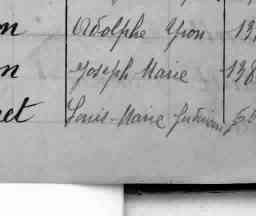 on Adolphe Yvon 13
on Joseph Marie 138
et Louis-Marie